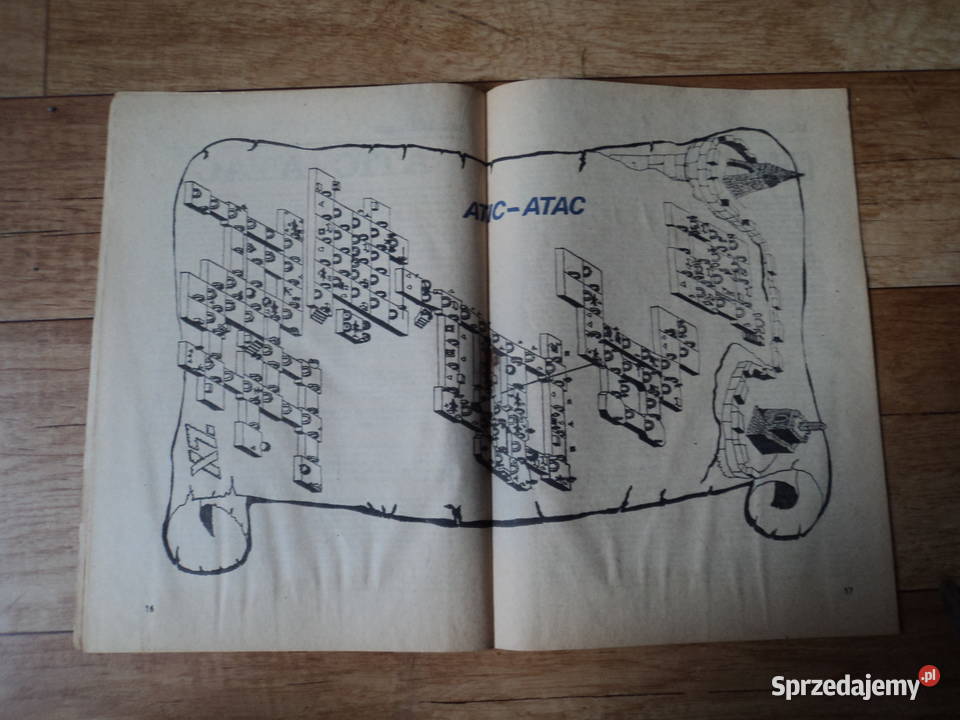 ATIC-ATAC
XZ
16
17
Sprzedajemy.pl